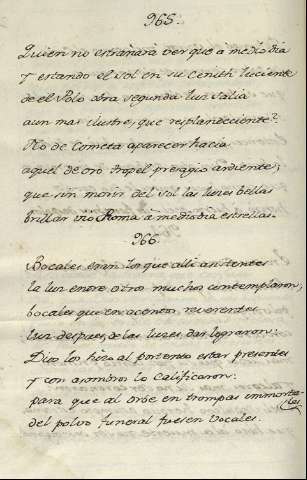 965.
Quien no estrañará ver que á medio dia
y estando el Sol en su Cenith luciente
de el Polo obra segunda luz salia
aun mas ilustre, que resplandeciente?
No de Cometa aparecer hacia
aquel de oro tropel presagio ardiente;
que sin morir del Sol las luces bellas
brillar vió Roma a medio dia estrellas.
966.
Bocales eran los que alli asistentes
la luz entre otros muchos contemplaron,
bocales que en acentos reverentes
luz despues, de las luces dar lograron:
Dios los hizo al portento estar presentes
y con asombro lo Calificaron:
para que al Orbe en trompas immorta-
les
del polvo funeral fuesen Vocales.